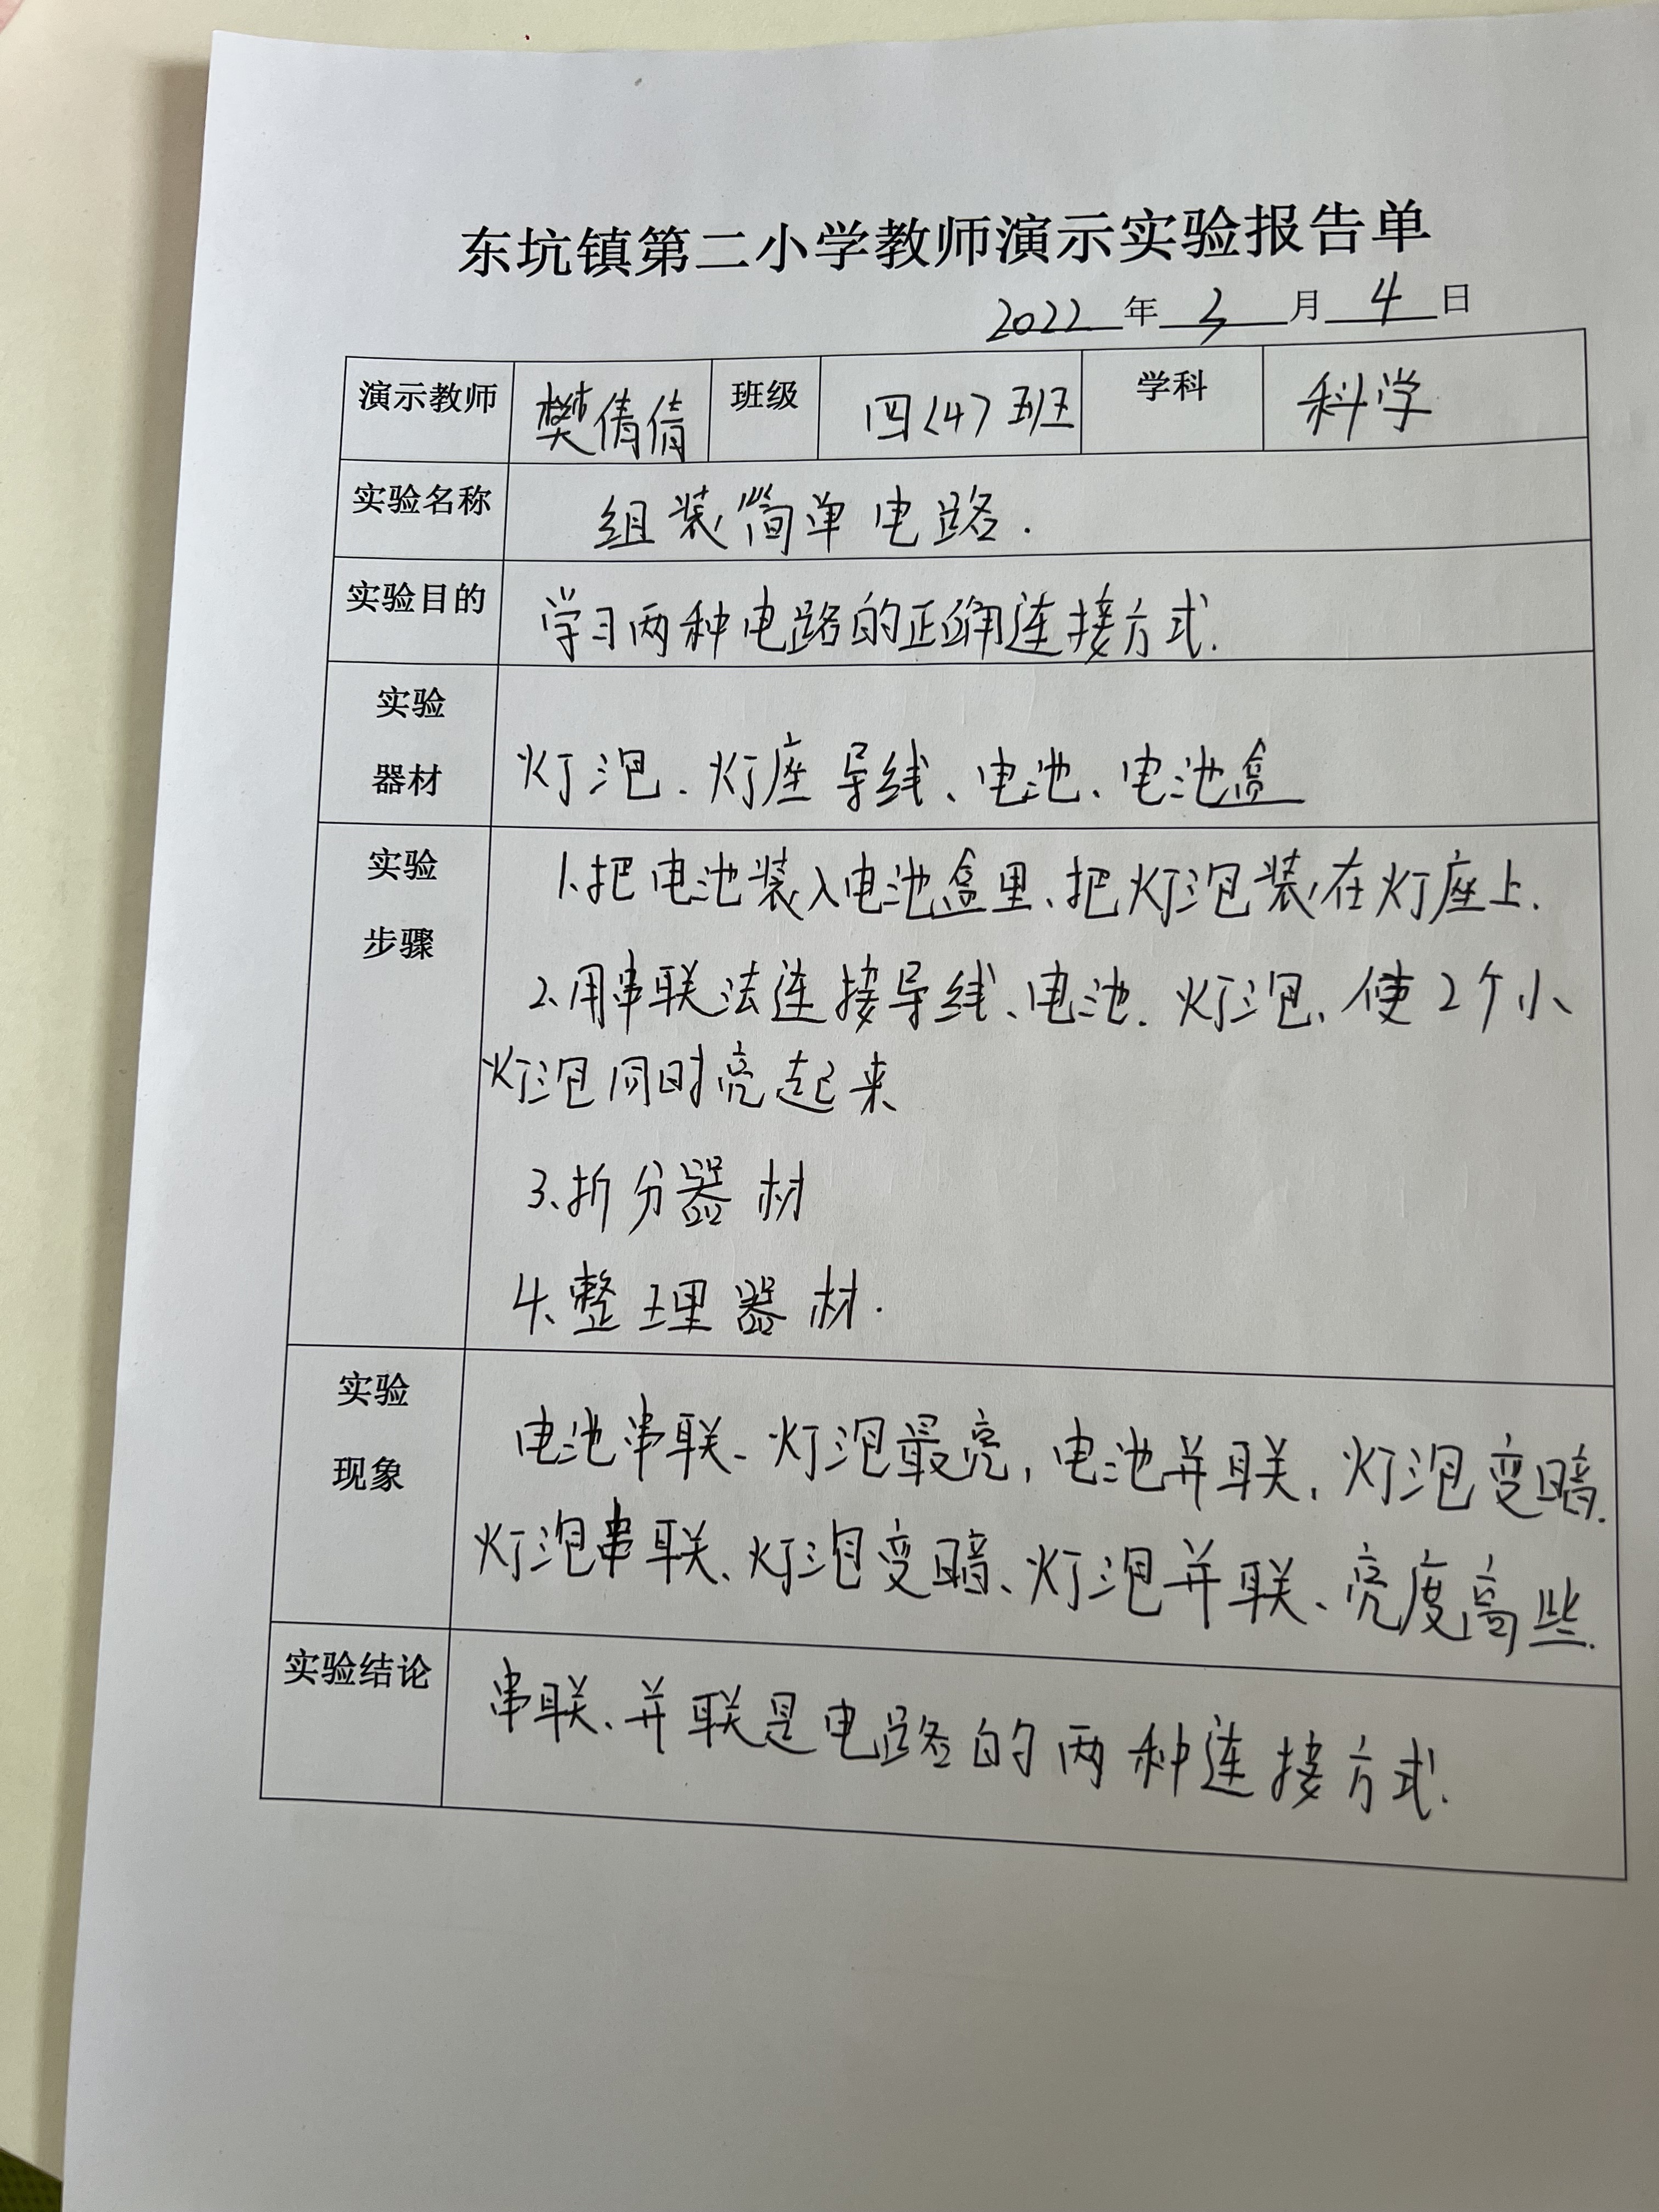 东坑镇第二小学教师演示实验报告单
2022年3月4日
演示教师 樊倩倩 班级 四(4)班 学科 科学
实验名称 组装简单电路.
实验目的 学习两种电路的正确连接方式.
实验
器材 灯泡、灯座 导线、电池、电池盒
实验 1、把电池装入电池盒里、把灯泡装在灯座上.
步骤
2、用串联法连接导线、电池、灯泡、使2个小
灯泡同时亮起来
3、折分器材
4、整理器材.
实验
现象
电池串联、灯泡最亮,电池并联,灯泡变暗.
灯泡串联、灯泡变暗、灯泡并联、亮度高些.
实验结论 串联、并联是电路的两种连接方式.